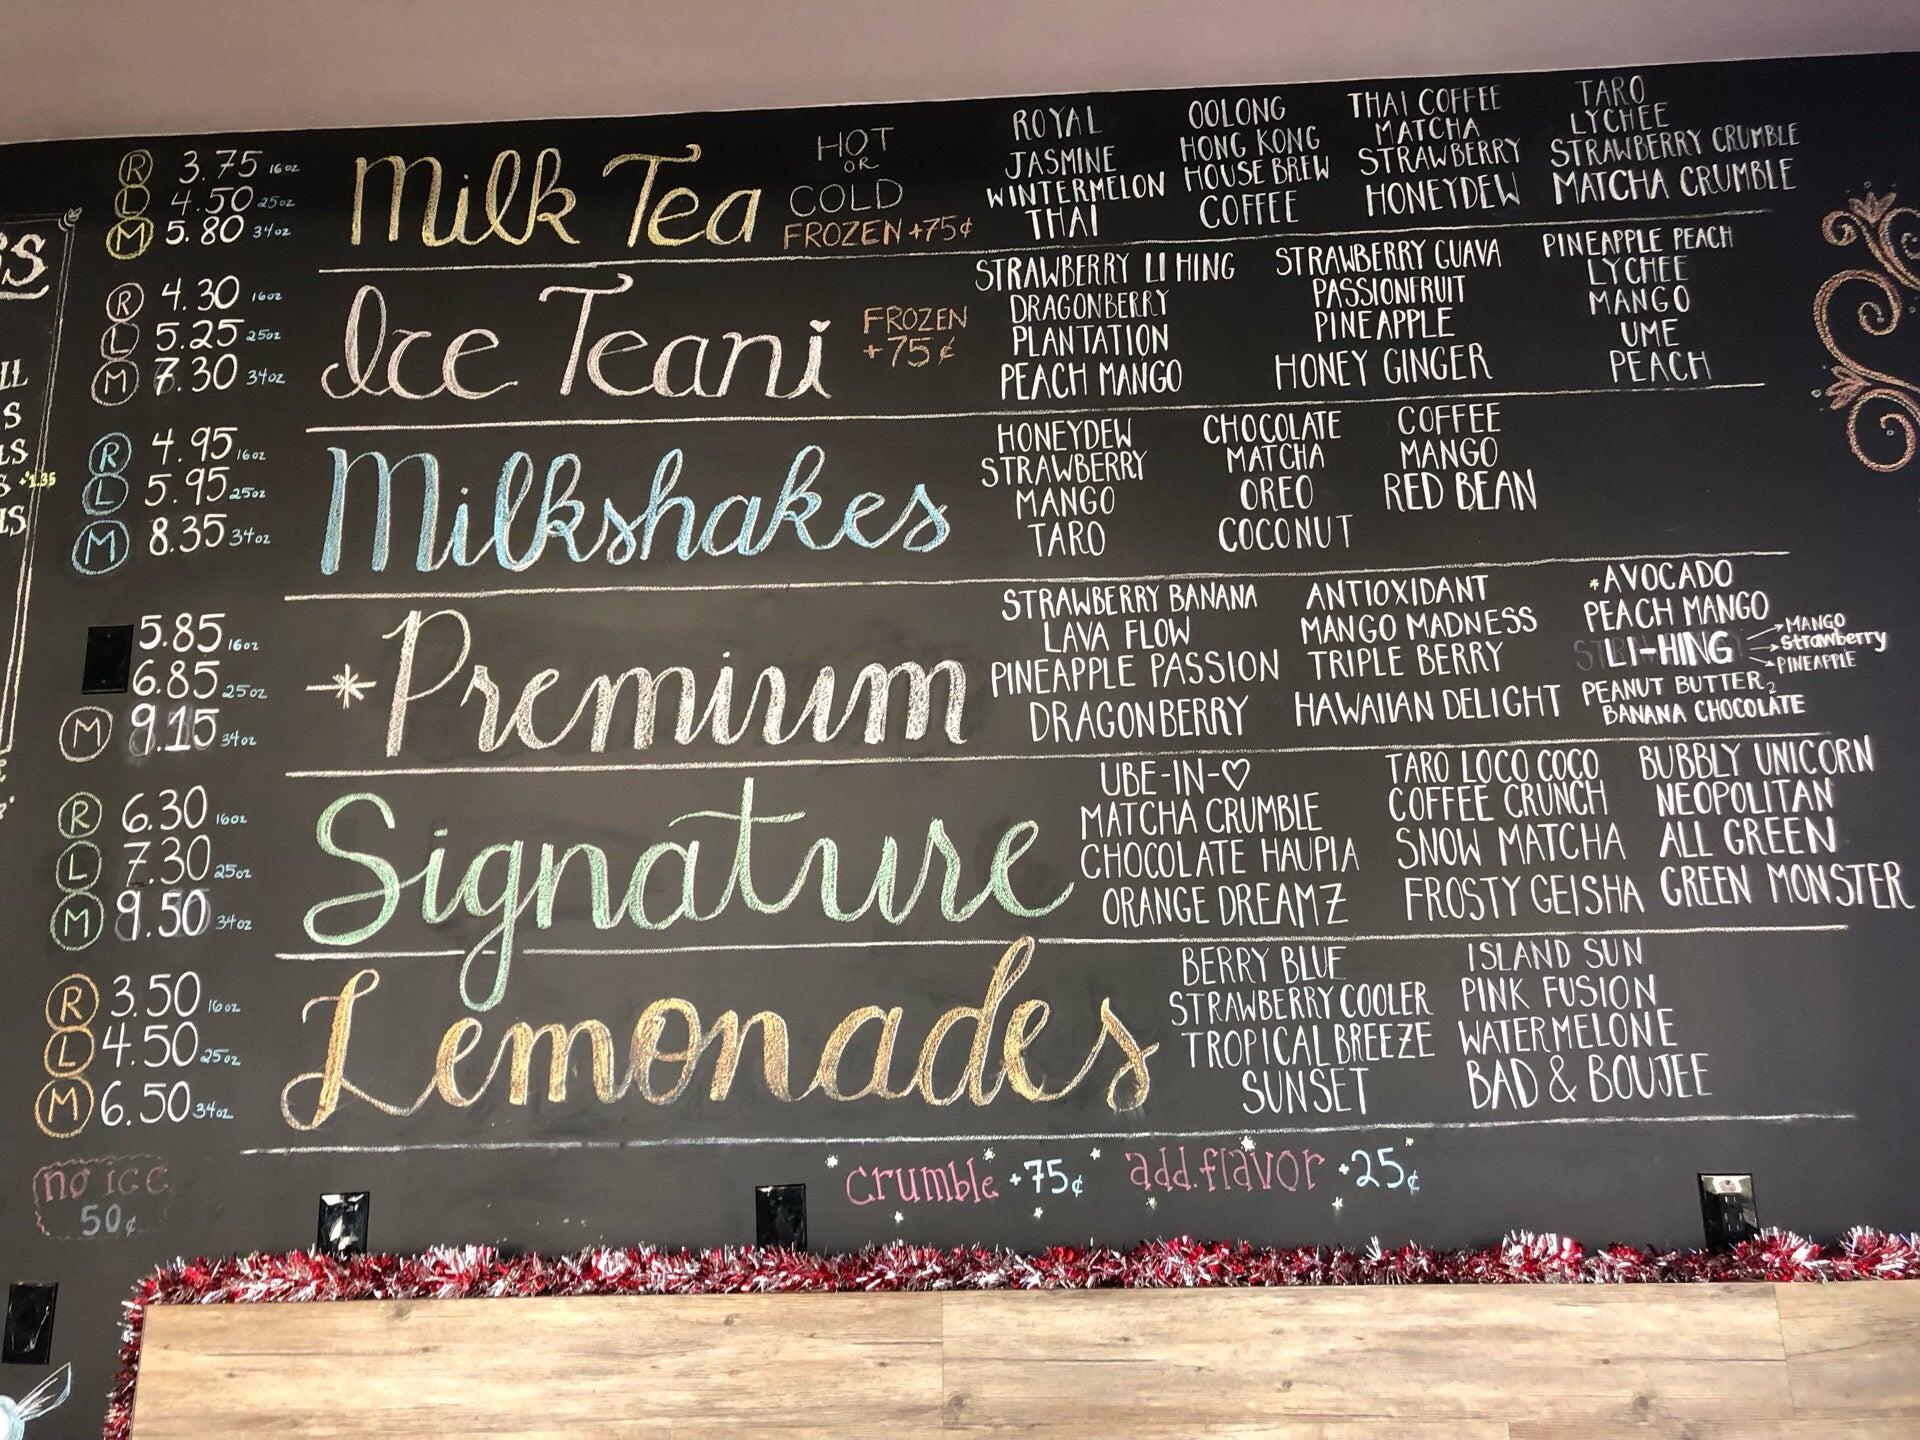 R 3.75 16oz
L 4.50 25oz
M 5.80 34oz
Milk Tea
HOT
OR
COLD
FROZEN +75¢
ROYAL
JASMINE
WINTERMELON
THAI
OOLONG
HONG KONG
HOUSE BREW
COFFEE
THAI COFFEE
MATCHA
STRAWBERRY
HONEYDEW
TARO
LYCHEE
STRAWBERRY CRUMBLE
MATCHA CRUMBLE
R 4.30 16oz
L 5.25 25oz
M 7.30 34oz
Ice Teani
FROZEN
+75¢
STRAWBERRY LI HING
DRAGONBERRY
PLANTATION
PEACH MANGO
STRAWBERRY GUAVA
PASSIONFRUIT
PINEAPPLE
HONEY GINGER
PINEAPPLE PEACH
LYCHEE
MANGO
UME
PEACH
R 4.95 16oz
L 5.95 25oz
M 8.35 34oz
Milkshakes
HONEYDEW
STRAWBERRY
MANGO
TARO
CHOCOLATE
MATCHA
OREO
COCONUT
COFFEE
MANGO
RED BEAN
5.85 16oz
6.85 25oz
M 9.15 34oz
*Premium
STRAWBERRY BANANA
LAVA FLOW
PINEAPPLE PASSION
DRAGONBERRY
ANTIOXIDANT
MANGO MADNESS
TRIPLE BERRY
HAWAIIAN DELIGHT
*AVOCADO
PEACH MANGO
LI-HING
MANGO
Strawberry
PINEAPPLE
PEANUT BUTTER
BANANA CHOCOLATE
R 6.30 16oz
L 7.30 25oz
M 9.50 34oz
Signature
UBE-IN-♡
MATCHA CRUMBLE
CHOCOLATE HAUPIA
ORANGE DREAMZ
TARO LOCO COCO
COFFEE CRUNCH
SNOW MATCHA
FROSTY GEISHA
BUBBLY UNICORN
NEOPOLITAN
ALL GREEN
GREEN MONSTER
R 3.50 16oz
L 4.50 25oz
M 6.50 34oz
Lemonades
BERRY BLUE
STRAWBERRY COOLER
TROPICAL BREEZE
SUNSET
ISLAND SUN
PINK FUSION
WATERMELONE
BAD & BOUJEE
no ice
50¢
crumble +75¢ add.flavor +25¢
+1.35